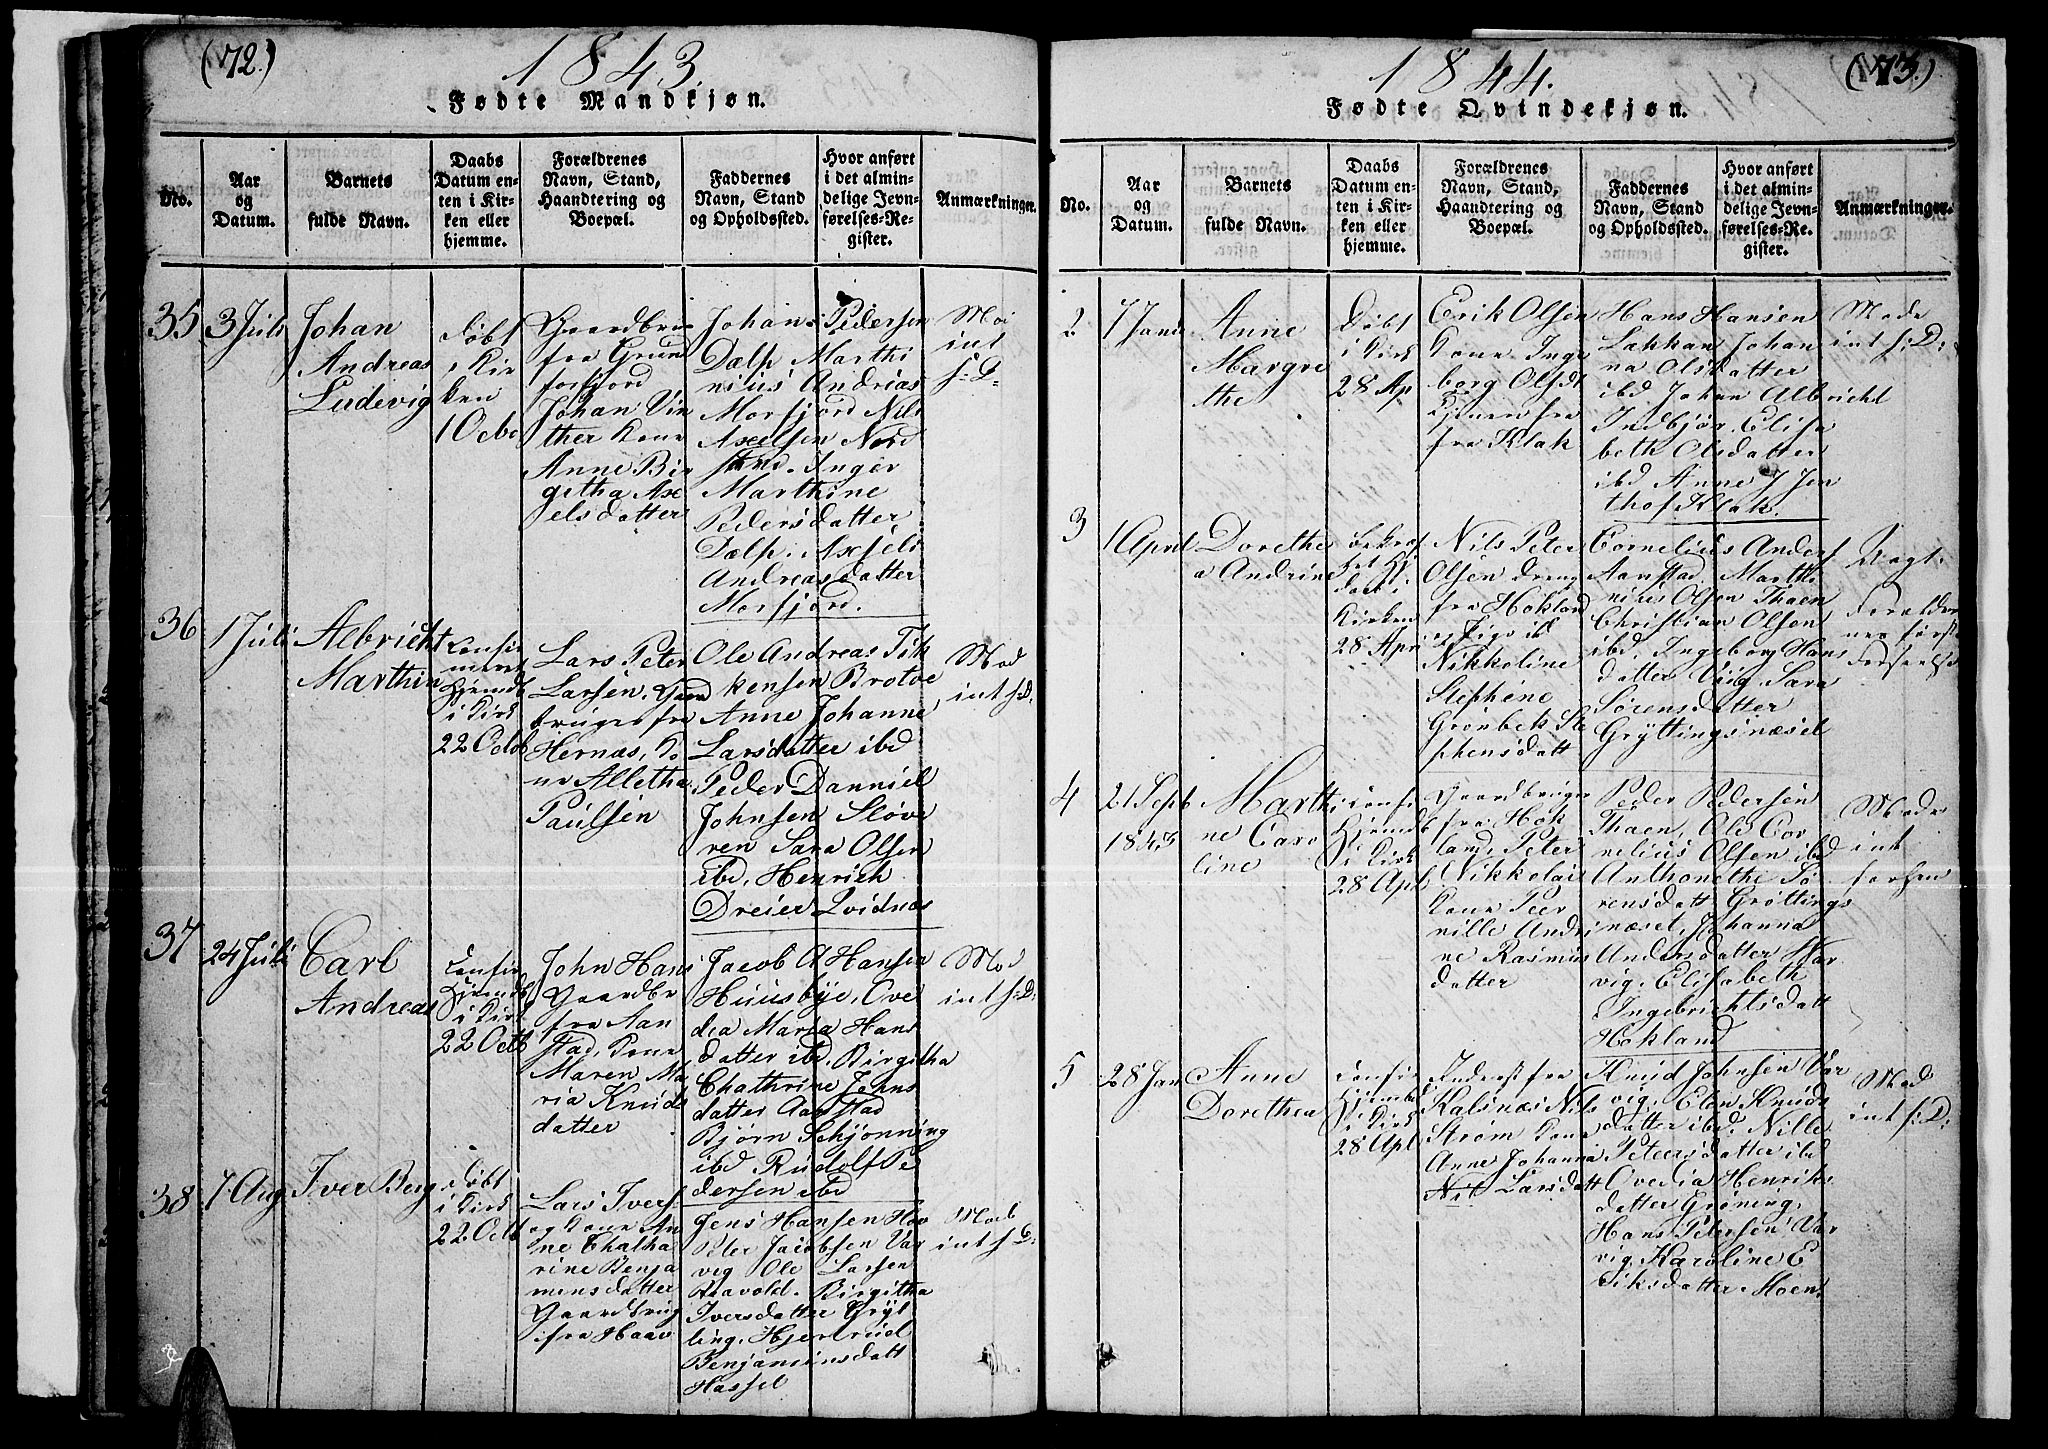 (72.)
1843.
Fødte Mandkjøn.
No.
Aar
og
Datum.
Barnets
fulde Navn.
Daabs
Datum en-
ten i Kir-
ken eller
hjemme.
Forældrenes
Navn, Stand,
Haandtering og
Boepæl.
Faddernes
Navn, Stand
og Opholdssted.
Hvor anført
i det almin-
delige Jevn-
førelses-Re-
gister.
Anmærkninger.
35
3 Juli
Johan
Andreas
Ludevig
døbt
i Kir
ken
1 Octo
Gaardbru
fra Grun
forfjord
Johan Vin
ther Kone
Anne Bir
getha Axe
elsdatter
Johans Pedersen
Dælp Marthi
nius Andreas
Morfjord Nils
Axelsen Nord
Inger
Marthine
Pedersdatter
Dælp
Andreasdatter
Morfjord.
Mo
int
s: D:
36
1 Juli
Albricht
Marthin
Confir
meret
Hjemdb
i Kirk
22 Octob
Lars Peter
Larsen, Gaard
bruger fra
Hernæs, Ko
ne Alletha
Paulsen
Ole Andreas Tik
kensen Brotve
Anne Johanne
Larsdatter ibd
Peder Danniel
Johnsen Sløve
ren Sara Olsen
ibd, Henrich
Dreier Qvidnæs
Mod
int s: D:
37
24 Juli
Carl
Andreas
Confir
Hjemdb
i Kirk
22 Octb
John Hans
Gaardbr
fra Aan
stad, Kone
Maren Ma
ria Knuds
datter
Jacob A Hansen
Huusbye, Ove
dia Maria Hans
datter ibd, Birgitha
Chathrine Johns
datter Aanstad
Bjørn Schjønning
ibd Rudolf Pe
dersen ibd
Mod
int s: D:
38
7 Aug
Iver Berg
døbt
i Kirk
22 Oct
Lars Ivers
og Kone An
ne Chatha
rine Benja
minsdatter
Gaardbrug
fra Haav
Jens Hansen Hov
Peter Jacobsen Var
vig Ole Larsen
Birgitha
Iversdatter Gryt
ting, Hjertrud
Benjaminsdatt
Hassel
Mod
int s: D:
(73.)
1844.
Fødte Qvindekjøn.
No.
Aar
og
Datum.
Barnets
fulde Navn.
Daabs
Datum en-
ten i Kir-
ken eller
hjemme.
Forældrenes
Navn, Stand,
Haandtering og
Boepæl.
Faddernes
Navn, Stand
og Opholdssted.
Hvor anført
i det almin-
delige Jevn-
førelses-Re-
gister.
Anmærkninger.
2
7 Janu
Anne
Margre
the
Døbt
i Kirk
28 Ap
Erik Olsen
Kone Inge
borg Olsdt
fra Klak
Hans Hansen
Lakhan Johan
na Olsdatter
ibd Johan Albricht
Indbjør, Elisa
beth Olsdatter
ibd Anne J Jen
thof Klak.
Mode
int s: D:
3
1 April
Dorethe
a Andrine
Kirken
28 Apri
Nils Peter
Olsen dreng
fra Hokland
og Pige ibd
Nikkoline
Stephine
Grønbek Ste
phensdatt
Cornelius Anders
Aanstad. Marthi
nius Olsen Thaen
Christian Olsen
ibd. Ingeborg Hans
datter Viig Sara
Sørensdatter
Gryttingsnæset
Uegt.
Forældre
nes første
4
21 Sept
1843
Marthi
ne Caro
line
Confir
Hjemdb
i Kirk
28 Apl
Gaardbruger
fra Hok
land, Peter
Nikkolais
Kone Peer
nille Andri
ne Rasmus
datter
Peder Pedersen
Thaen, Ole Cor
nelius Olsen ibd
Anthonethe Sø
rensdatt Grøttings
næset, Johanna
Andersdatter War
vig, Elisabeth
Ingebrichtsdatt
Hokland
Mode
int
forhen
5
28 Jan
Anne
Dorethea
Confir
Hjemdb
i Kirk
28 Apl
Inderst fra
Kalsnæs Nils
Strøm Kone
Anne Johanna
Nil Larsdatt
Knud Johnsen Var
vig, Elen Knuds
datter ibd. Nille
Petersdatter ibd
Ovedia Henriks
datter Grøning,
Hans Petersen Var
vig, Karoline E
riksdatter Moen
Mod
int s: D: